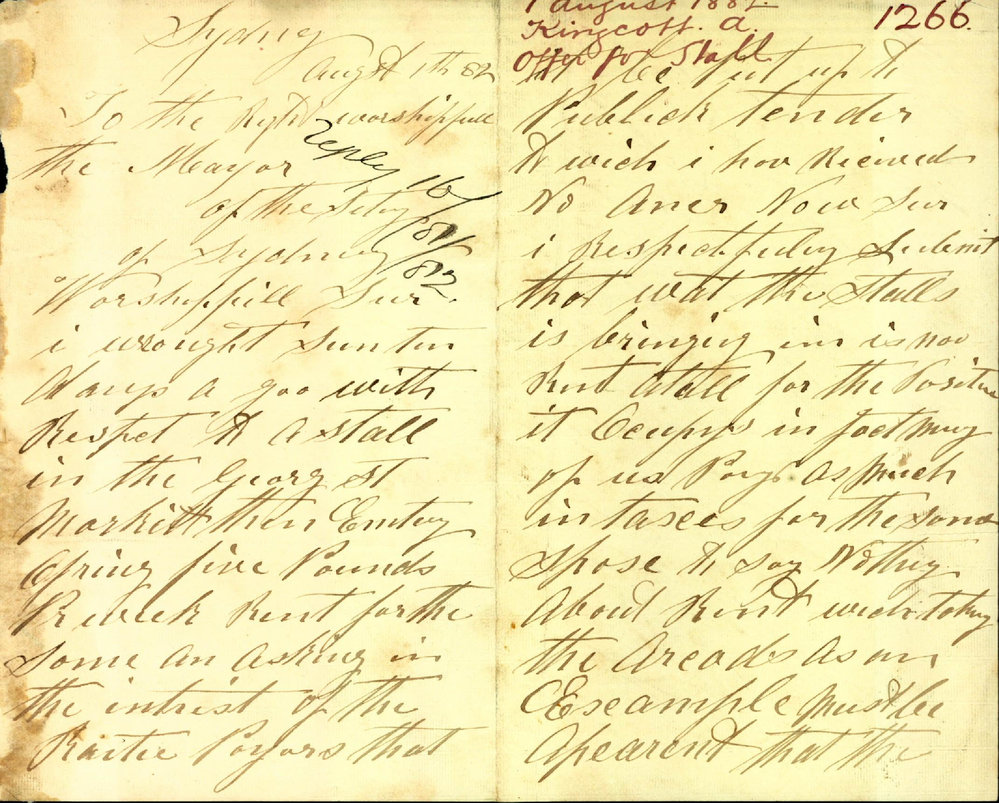 Sydney
August 1th 82
To the Right worshipfull
the Mayor
of the Sity
of Sydney
Worshipfill Sur.
i wrought Sum ten
days a goo with
Respect to a stall
in the Georg St
Markitt then Emtey
Ofring five Pounds
Pr week Rent for the
Same an asking in
the intrist of the
Raitie Payors that
reply 16/8/82
1 August 1882.
Kingcott. A.
Offer for Stall
1266.
it be put up to
Publick tender
to wich i hav Recieved
No Anser Now Sur
i Respectfuley Submit
that wat the Stalls
is bringing in is no
Rent atall for the Position
it Ocupys in fact many
of us Pays as Much
in taxes for the same
spase to say Nothing
About Rent wich taking
the Arcads as an
Exsample must be
Apearent that the